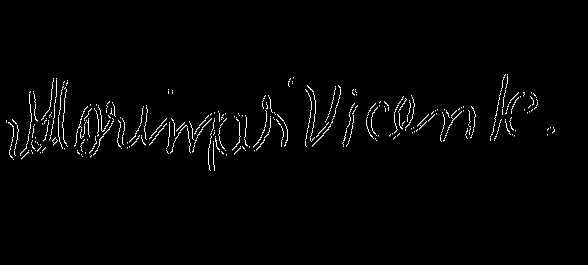 Marimar Vicente.